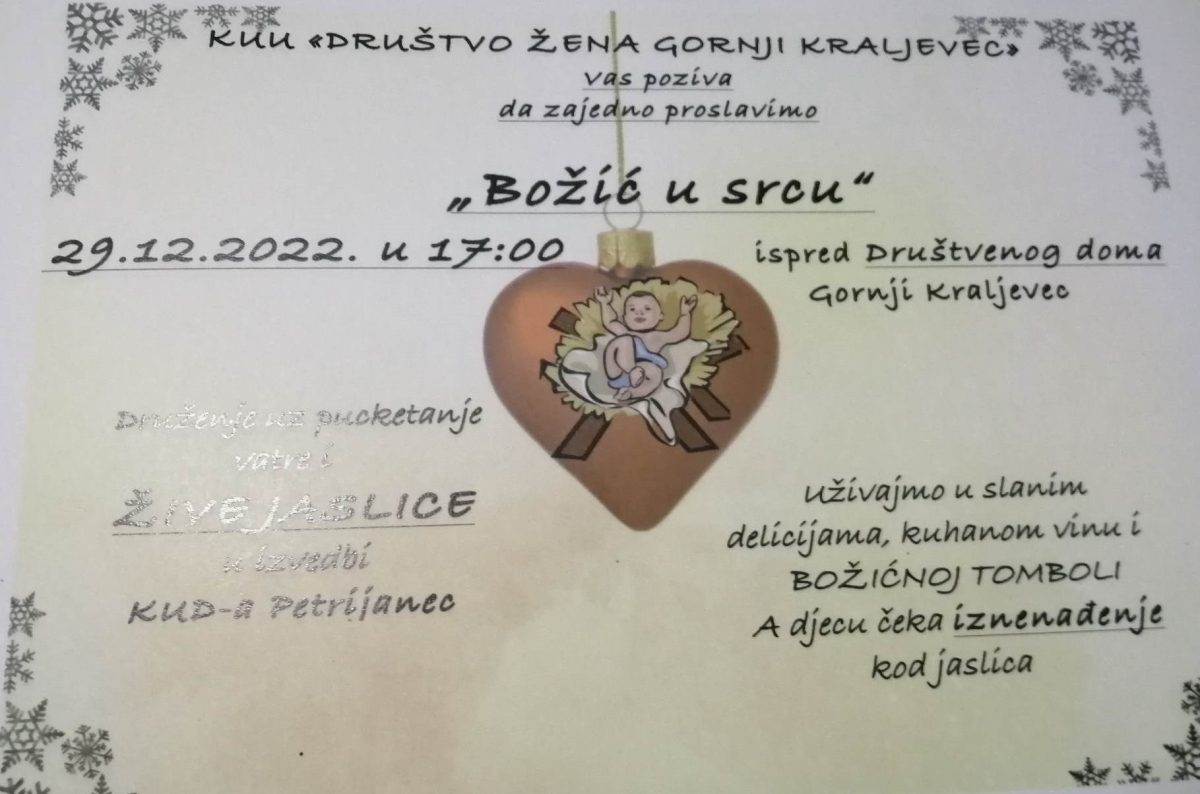 KUU «DRUŠTVO ŽENA GORNJI KRALJEVEC»
vas poziva
da zajedno proslavimo
„Božić u srcu“
29.12.2022. u 17:00
ispred Društvenog doma
Gornji Kraljevec
Druženje uz pucketanje
vatre i
ŽIVE JASLICE
u izvedbi
KUD-a Petrijanec
Uživajmo u slanim
delicijama, kuhanom vinu i
BOŽIĆNOJ TOMBOLI
A djecu čeka iznenađenje
kod jaslica